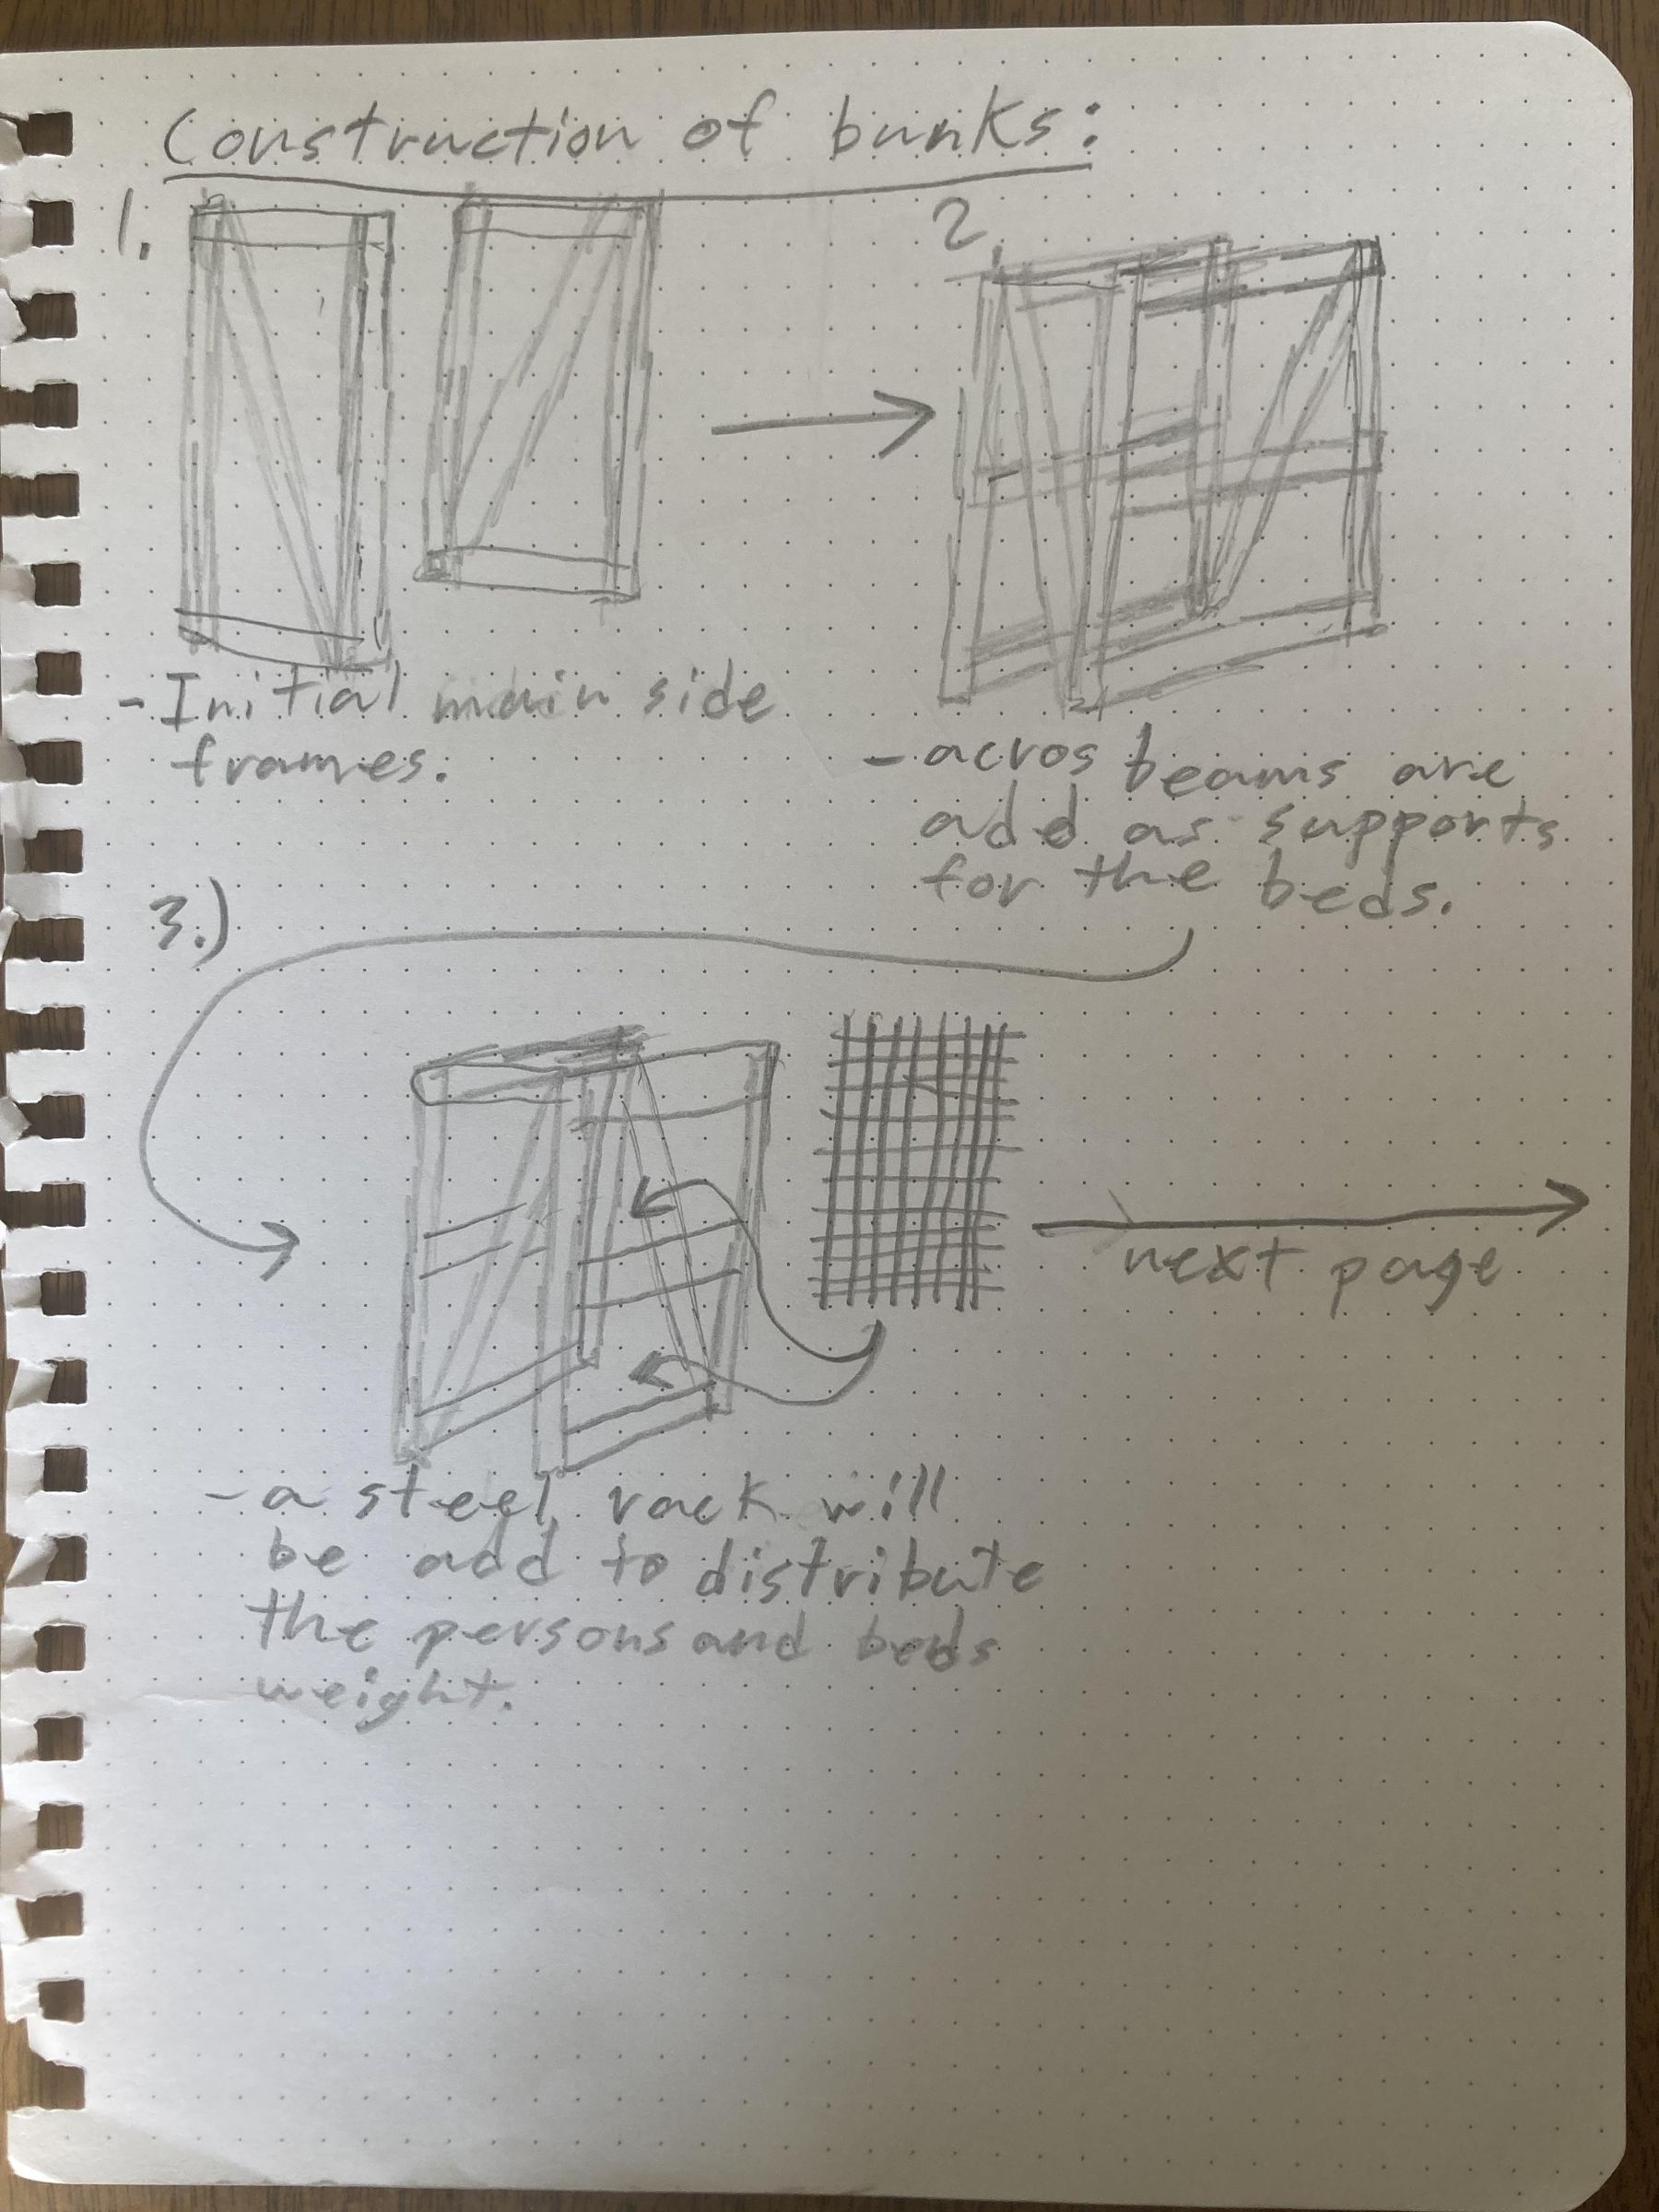 Construction of bunks:
1.
- Initial main side
frames.
2.
- acros beams are
add as supports
for the beds.
3.)
next page
- a steel rack will
be add to distribute
the persons and beds
weight.